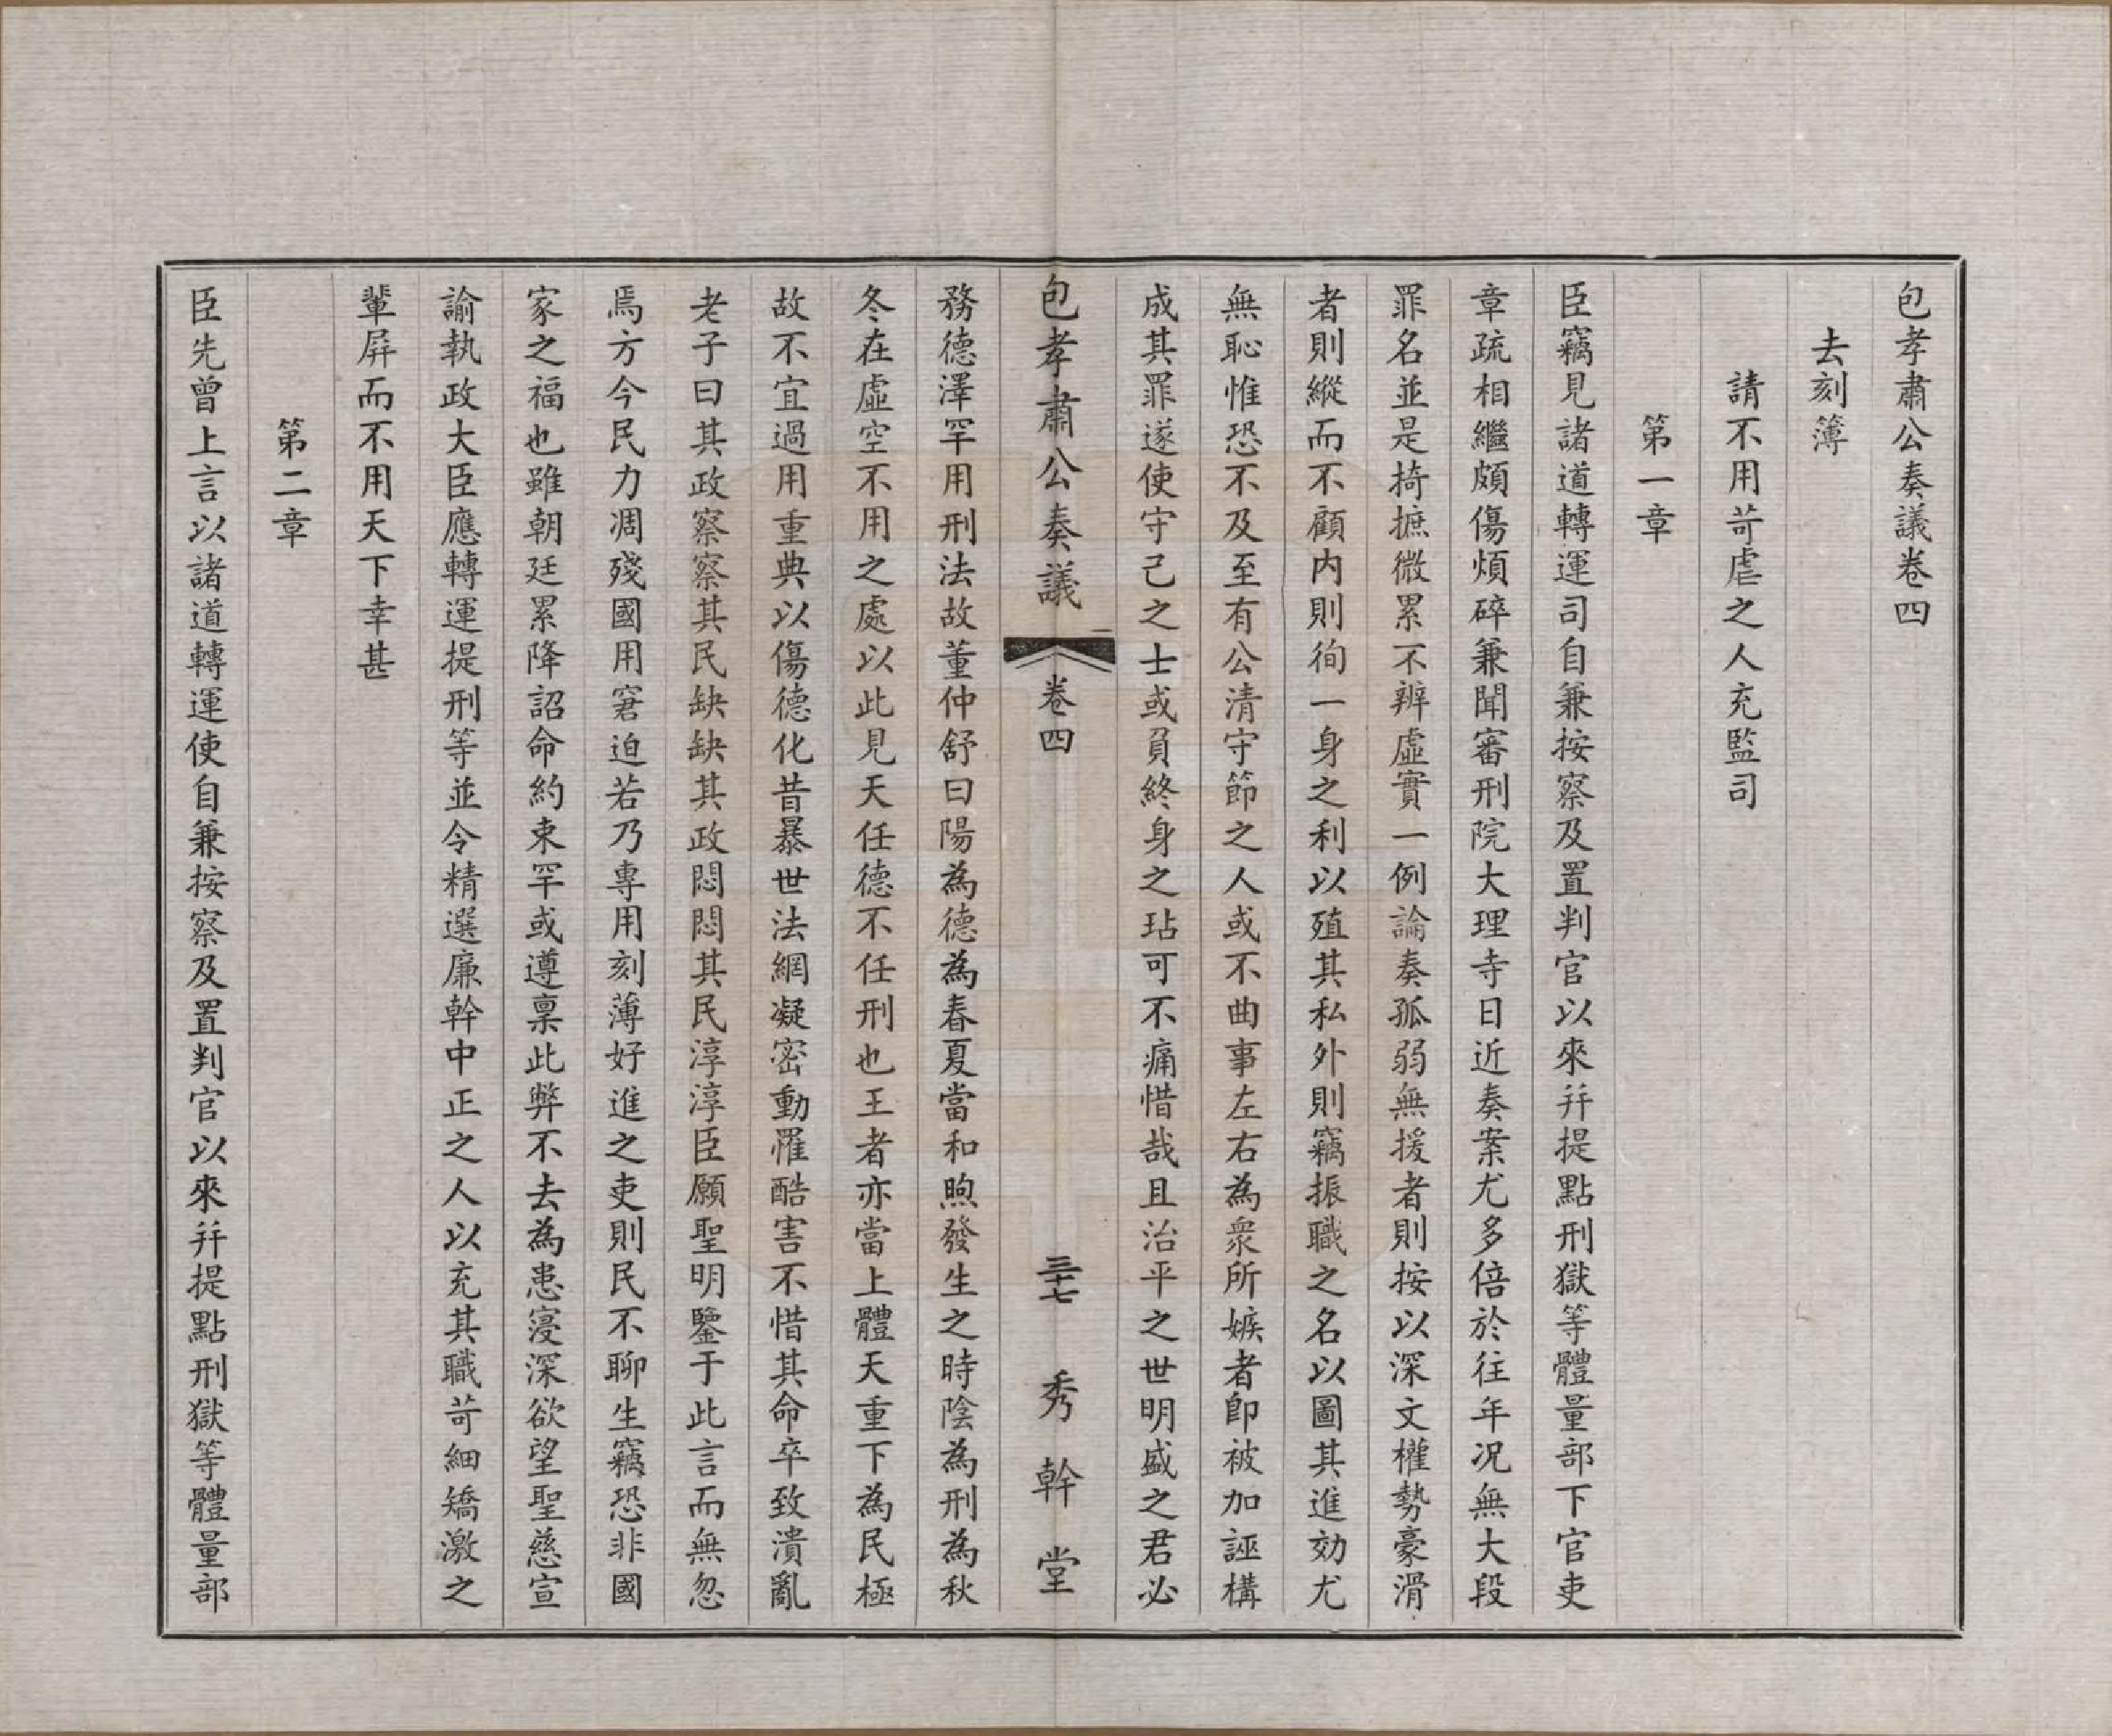 包孝肅公奏議卷四
去刻薄
請不用苛虐之人充監司
第一章
臣竊見諸道轉運司自兼按察及置判官以來幷提點刑獄等體量部下官吏
章疏相繼頗傷煩碎兼聞審刑院大理寺日近奏案尤多倍於往年况無大段
罪名並是掎摭微累不辨虛實一例論奏孤弱無援者則按以深文權勢豪滑
者則縱而不顧内則徇一身之利以殖其私外則竊振職之名以圖其進効尤
無恥惟恐不及至有公清守節之人或不曲事左右為衆所嫉者卽被加誣構
成其罪遂使守己之士或負終身之玷可不痛惜哉且治平之世明盛之君必
包孝肅公奏議 卷四 三十七 秀幹堂
務德澤罕用刑法故董仲舒曰陽為德為春夏當和煦發生之時陰為刑為秋
冬在虛空不用之處以此見天任德不任刑也王者亦當上體天重下為民極
故不宜過用重典以傷德化昔暴世法網凝密動罹酷害不惜其命卒致潰亂
老子曰其政察察其民缺缺其政悶悶其民淳淳臣願聖明鑒于此言而無忽
焉方今民力凋殘國用窘迫若乃專用刻薄好進之吏則民不聊生竊恐非國
家之福也雖朝廷累降詔命約束罕或遵稟此弊不去為患寖深欲望聖慈宣
諭執政大臣應轉運提刑等並令精選廉幹中正之人以充其職苛細矯激之
輩屏而不用天下幸甚
第二章
臣先曾上言以諸道轉運使自兼按察及置判官以來幷提點刑獄等體量部